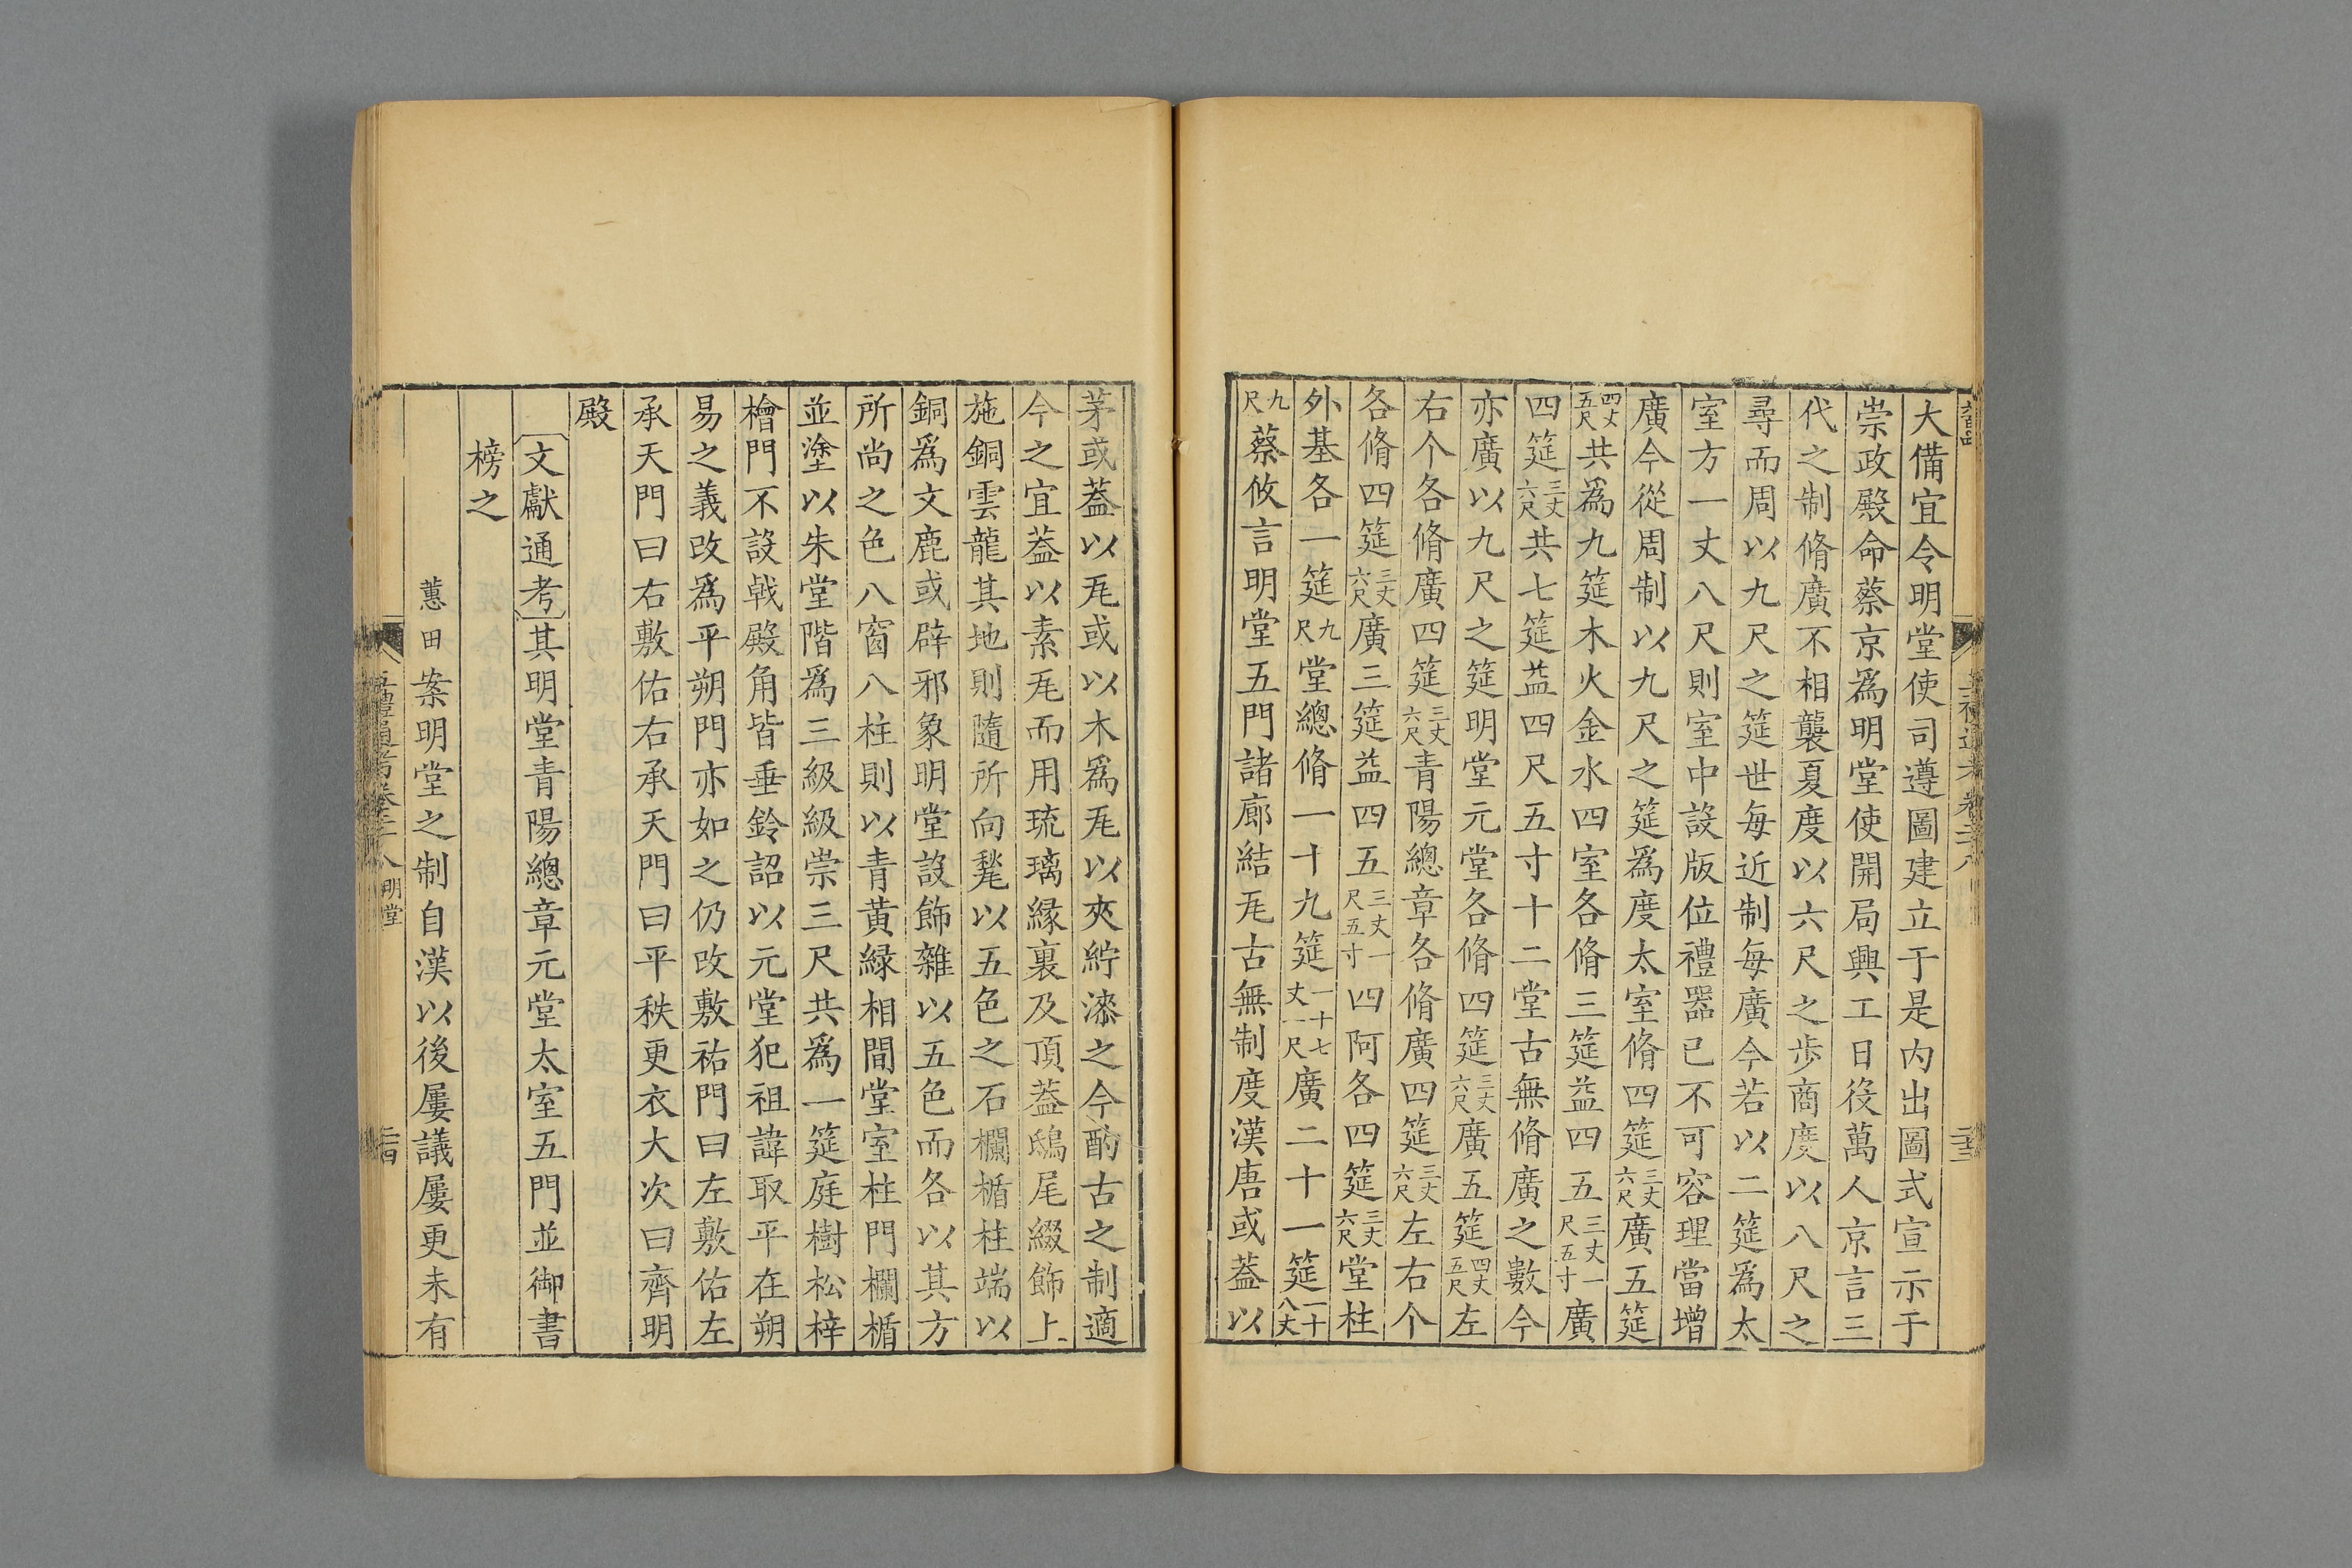 大備宜令明堂使司遵圖建立于是内出圖式宣示于
崇政殿命蔡京爲明堂使開局興工日役萬人京言三
代之制脩廣不相襲夏度以六尺之步商度以八尺之
尋而周以九尺之筵世每近制每廣今若以二筵爲太
室方一丈八尺則室中設版位禮器已不可容理當增
廣今從周制以九尺之筵爲度太室脩四筵三丈六尺廣五筵
四丈五尺共爲九筵木火金水四室各脩三筵益四五三丈一尺五寸廣
四筵三丈六尺共七筵益四尺五寸十二堂古無脩廣之數今
亦廣以九尺之筵明堂元堂各脩四筵三丈六尺廣五筵四丈五尺左
右个各脩廣四筵三丈六尺青陽總章各脩廣四筵三丈六尺左右个
各脩四筵三丈六尺廣三筵益四五三丈一尺五寸四阿各四筵三丈六尺堂柱
外基各一筵九尺堂總脩一十九筵一十七丈一尺廣二十一筵一十八丈
九尺蔡攸言明堂五門諸廊結瓦古無制度漢唐或蓋以
茅或蓋以瓦或以木爲瓦以夾紵漆之今酌古之制適
今之宜蓋以素瓦而用琉璃緣裏及頂蓋鴟尾綴飾上
施銅雲龍其地則隨所向甃以五色之石欄楯柱端以
銅爲文鹿或辟邪象明堂設飾雜以五色而各以其方
所尚之色八窗八柱則以青黃緑相間堂室柱門欄楯
並塗以朱堂階爲三級級崇三尺共爲一筵庭樹松梓
檜門不設戟殿角皆垂鈴詔以元堂犯祖諱取平在朔
易之義改爲平朔門亦如之仍改敷祐門曰左敷佑左
承天門曰右敷佑右承天門曰平秩更衣大次曰齊明
殿
文獻通考其明堂青陽總章元堂太室五門並御書
榜之
蕙田案明堂之制自漢以後屢議屢更未有
五禮通考卷二十八 明堂 二十四